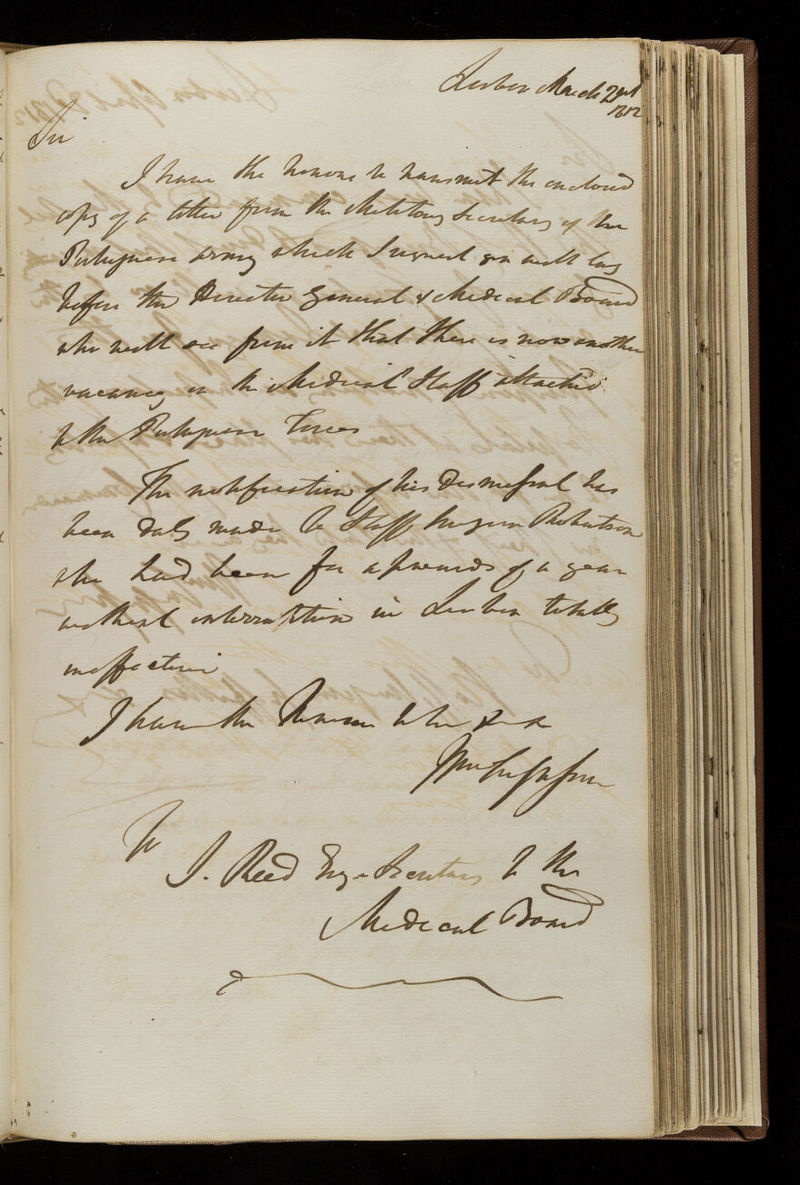 Lisbon March 2nd
1812
Sir
I have the honour to transmit the enclosed
copy of a letter from the Military Secretary of the
Portuguese Army which I request you will lay
before the Director General & Medical Board
who will see from it that there is now another
vacancy in the Medical Staff attached
to the Portuguese Forces
The notification of his dismissal has
been duly made to Staff Surgeon Robertson
who had been for upwards of a year
without interruption in Lisbon totally
ineffective
I have the Honour to be &c &c
Wm Fergusson
To
J. Reed Esqr Secretary to the
Medical Board